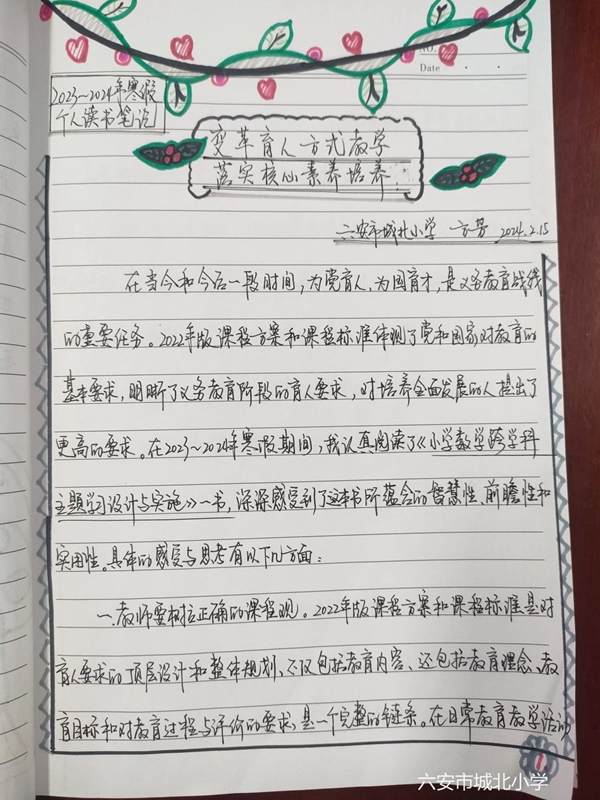 NO.
Date
2023~2024年寒假
个人读书笔记
变革育人方式教学
落实核心素养培养!
六安市城北小学 方芳 2024.2.15
在当今和今后一段时间,为党育人、为国育才,是义务教育战线
的重要任务。2022年版课程方案和课程标准体现了党和国家对教育的
基本要求,明晰了义务教育阶段的育人要求,对培养全面发展的人提出了
更高的要求。在2023~2024年寒假期间,我认真阅读了《小学数学跨学科
主题学习设计与实施》一书,深深感受到了这本书所蕴含的智慧性、前瞻性和
实用性。具体的感受与思考有以下几方面:
一.教师要树立正确的课程观。2022年版课程方案和课程标准是对
育人要求的顶层设计和整体规划,不仅包括教育内容、还包括教育理念、教
育目标和对教育过程与评价的要求,是一个完整的链条。在日常教育教学活动
1.
六安市城北小学